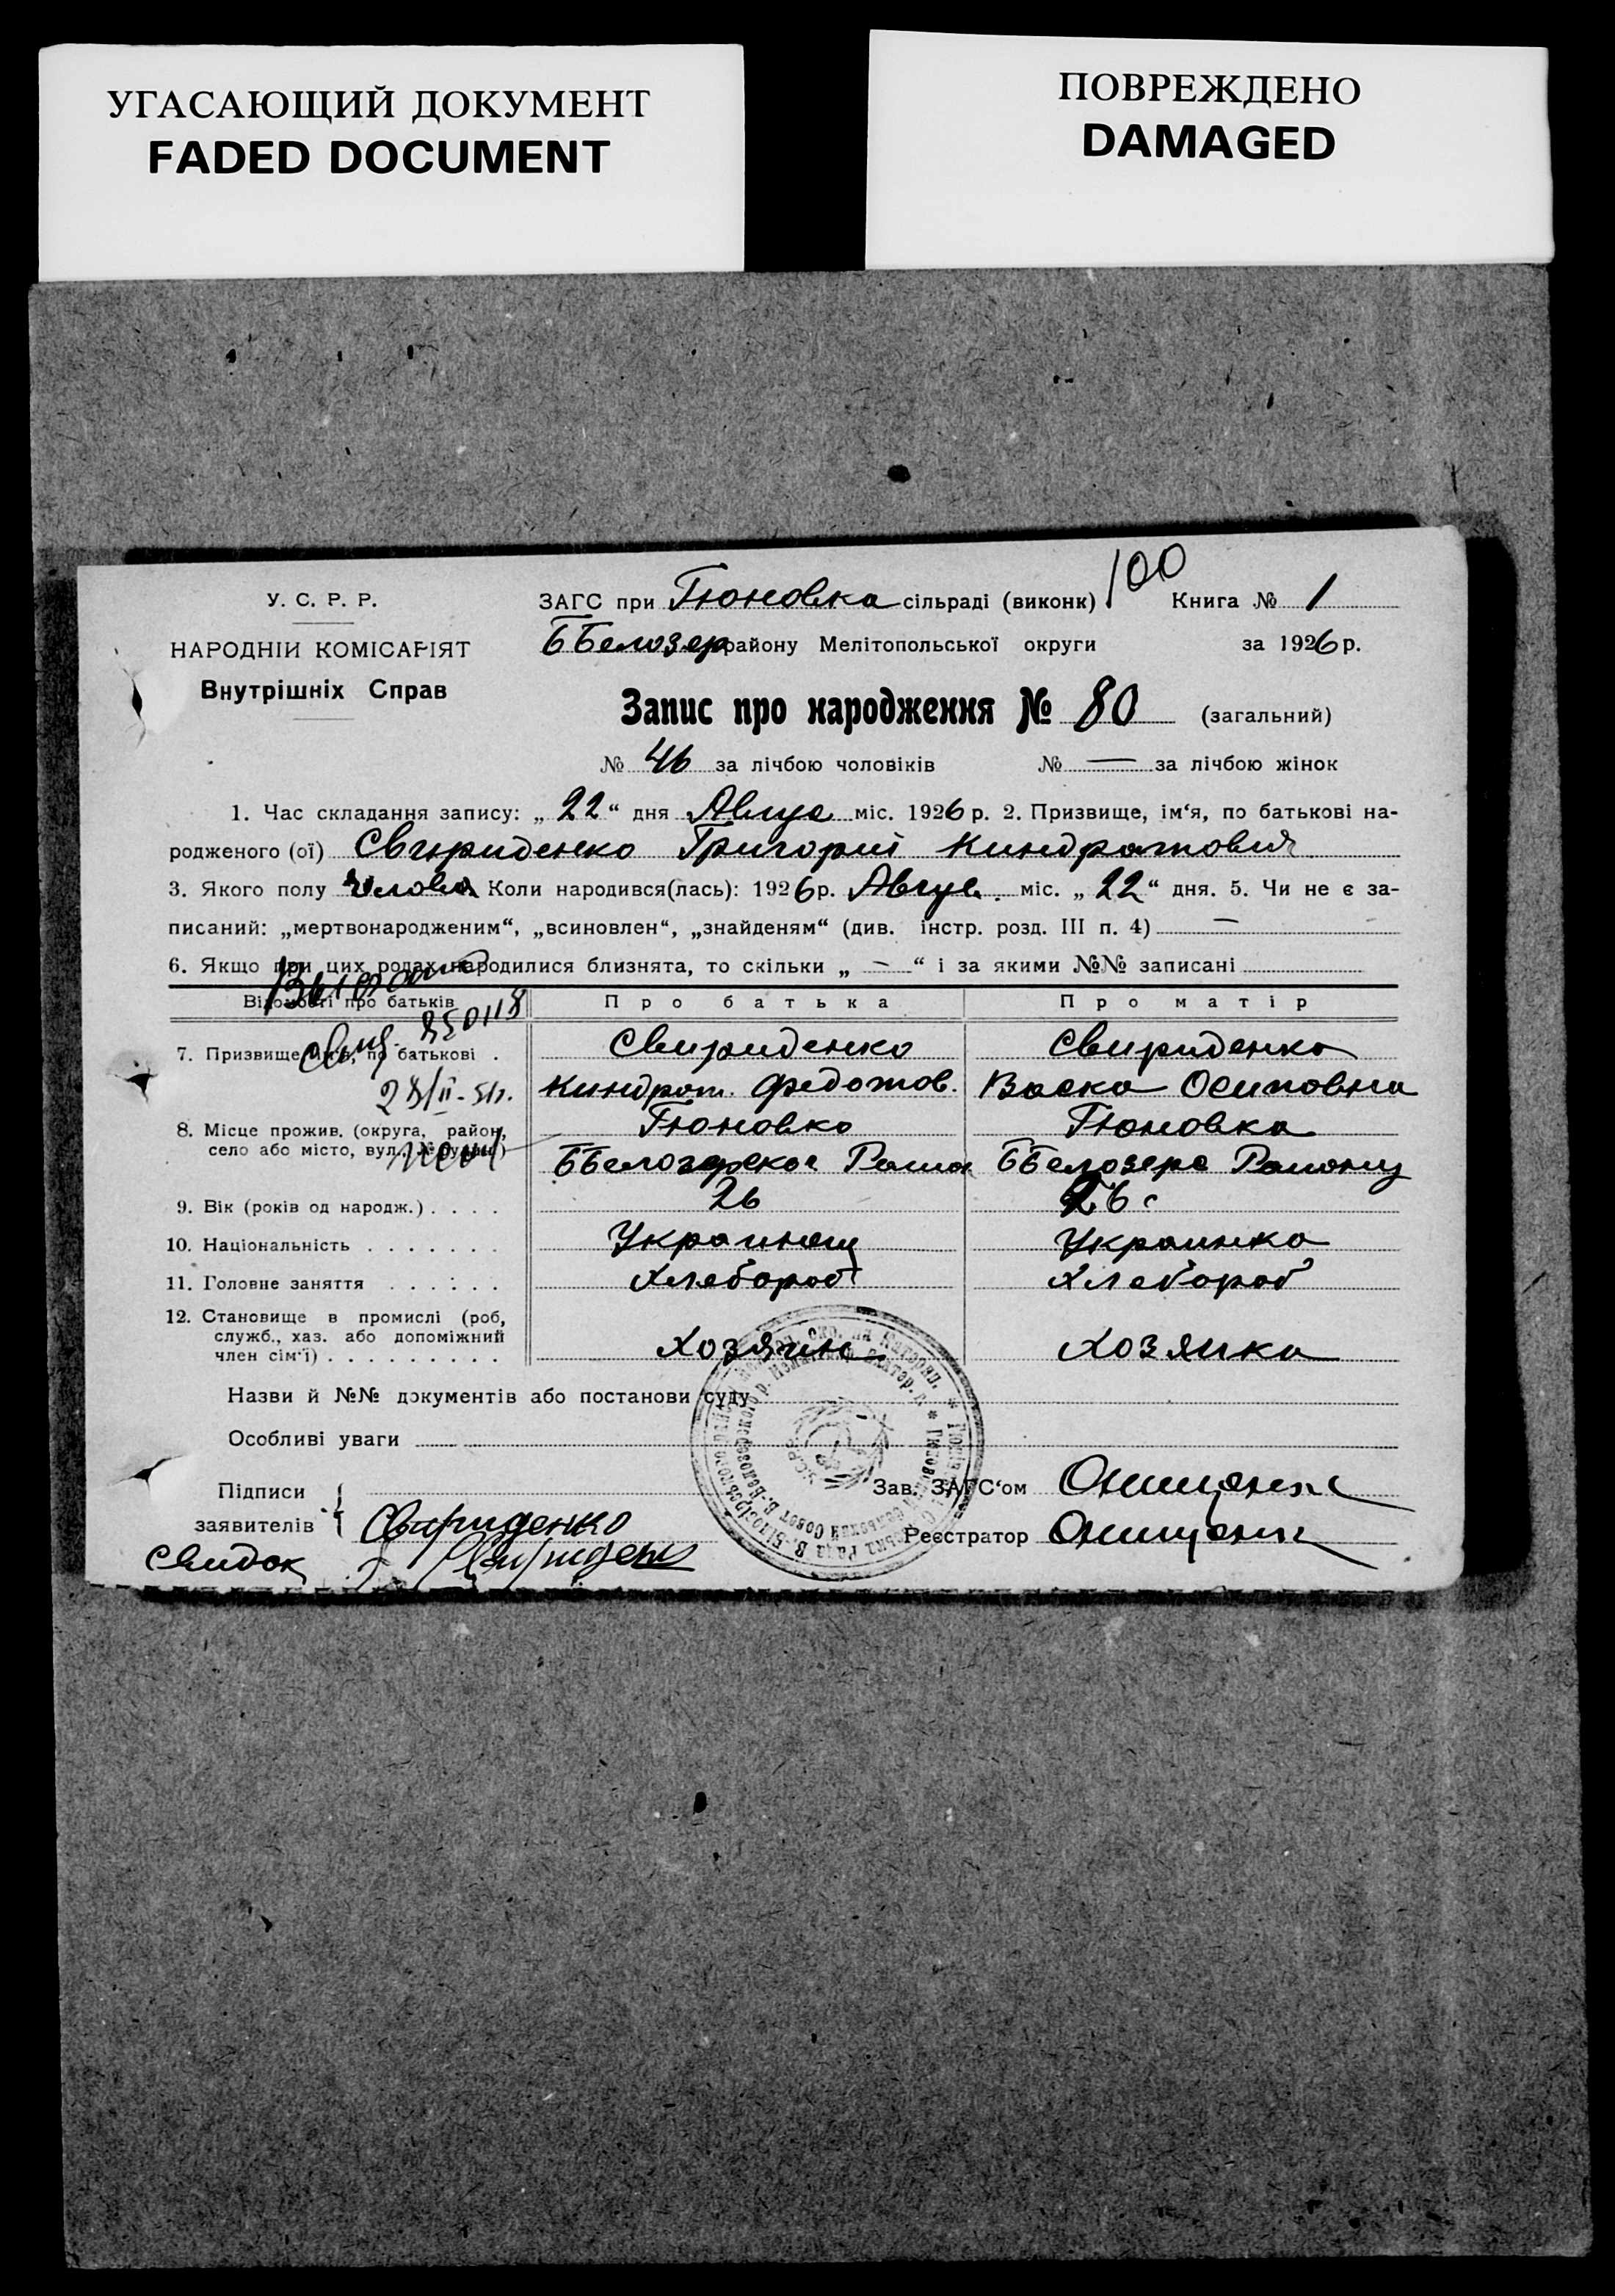 УГАСАЮЩИЙ ДОКУМЕНТ
FADED DOCUMENT
ПОВРЕЖДЕНО
DAMAGED
100
У. С. Р. Р.
ЗАГС при Гюновка сільраді (виконк) Книга № 1
НАРОДНІЙ КОМІСАРІЯТ
ББелозер району Мелітопольської округи за 1926 р.
Внутрішніх Справ
Запис про народження № 80 (загальний)
№ 46 за лічбою чоловіків № — за лічбою жінок
1. Час складання запису: „ 22 “ дня Авгус міс. 1926 р. 2. Призвище, ім‘я, по батькові на-
родженого (ої) Свириденко Григорий Киндратович
3. Якого полу Челов. Коли народився(лась): 1926 р. Авгус. міс. „ 22 “ дня. 5. Чи не є за-
писаний: „мертвонародженим“, „всиновлен“, „знайденям“ (див. інстр. розд. III п. 4) —
6. Якщо при цих родах народилися близнята, то скільки „ — “ і за якими №№ записані
Відомості про батьків Про батька Про матір
7. Призвище, ім‘я, по батькові . Свириденко Свириденко
Киндрат. Федотов. Васка Осиповна
8. Місце прожив. (округа, район, Гюновко Гюновка
село або місто, вул., № будин.) ББелозерско Раио ББелозерс Раиону
9. Вік (років од народж.) . . . . 26 26
10. Національність . . . . . . . Украинец Украинка
11. Головне заняття . . . . . . Хлебороб Хлебороб
12. Становище в промислі (роб,
служб., хаз. або допоміжний
член сім‘ї) . . . . . . . . . Хозяин Хозяика
Выдано
свид. 350118
28/II-51г.
Назви й №№ документів або постанови суду
Особливі уваги
Підписи
заявителів Свириденко
Свидок Свириденко
Зав. ЗАГС‘ом Онищенк
Реєстратор Онищенк